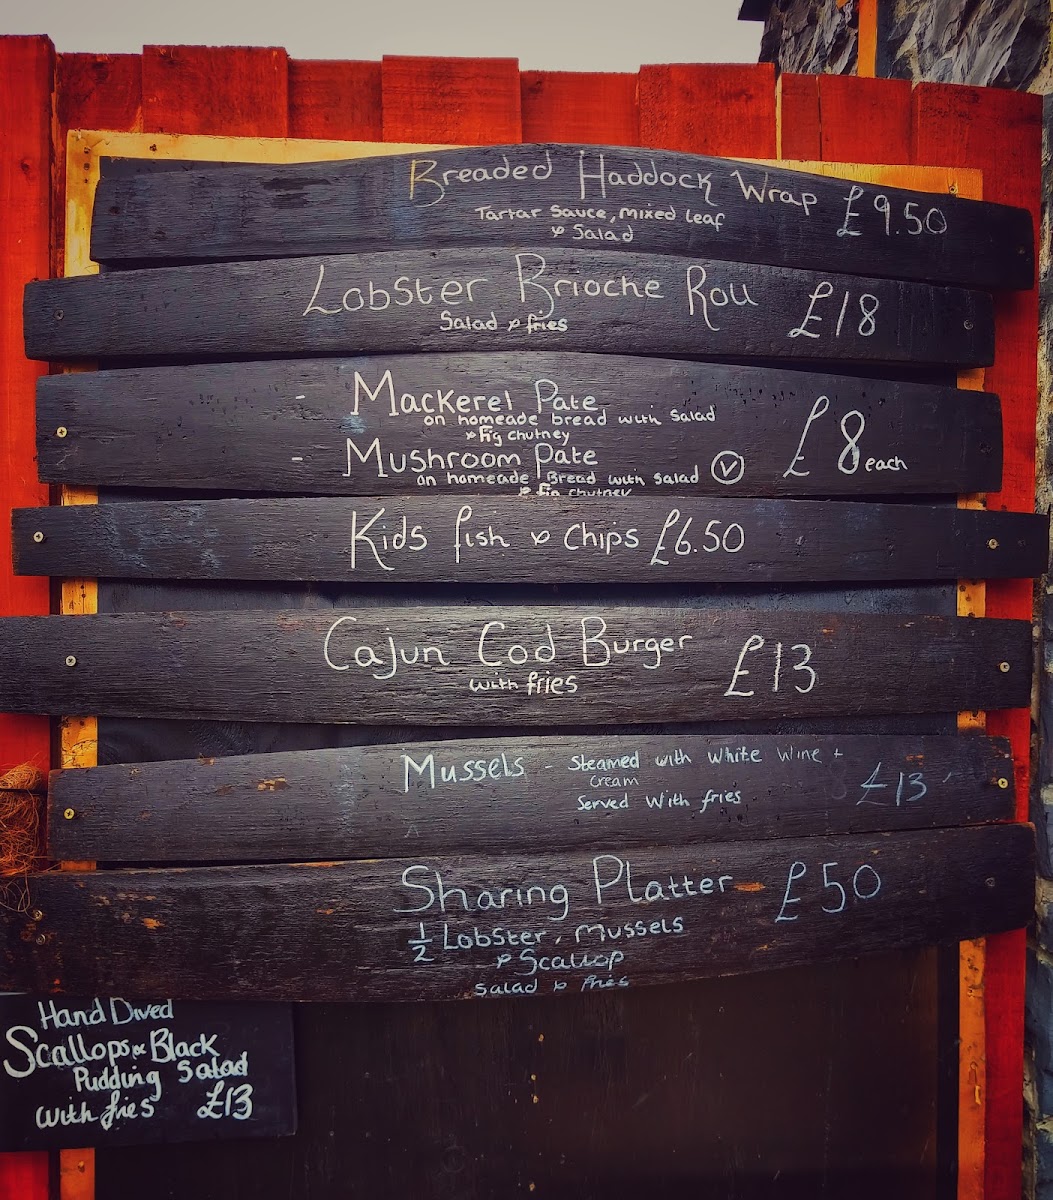 Breaded Haddock Wrap £9.50
Tartar Sauce, mixed leaf
& Salad
Lobster Brioche Roll £18
Salad & fries
- Mackerel Pate
on homeade bread with Salad
& Fig chutney
- Mushroom Pate
on homeade Bread with salad Ⓥ
& fig chutney
£8 each
Kids fish & Chips £6.50
Cajun Cod Burger £13
with fries
Mussels - Steamed with White Wine +
Cream
Served With fries
£13
Sharing Platter £50
½ Lobster, Mussels
& Scallop
Salad & fries
Hand Dived
Scallops & Black
Pudding Salad
with fries £13